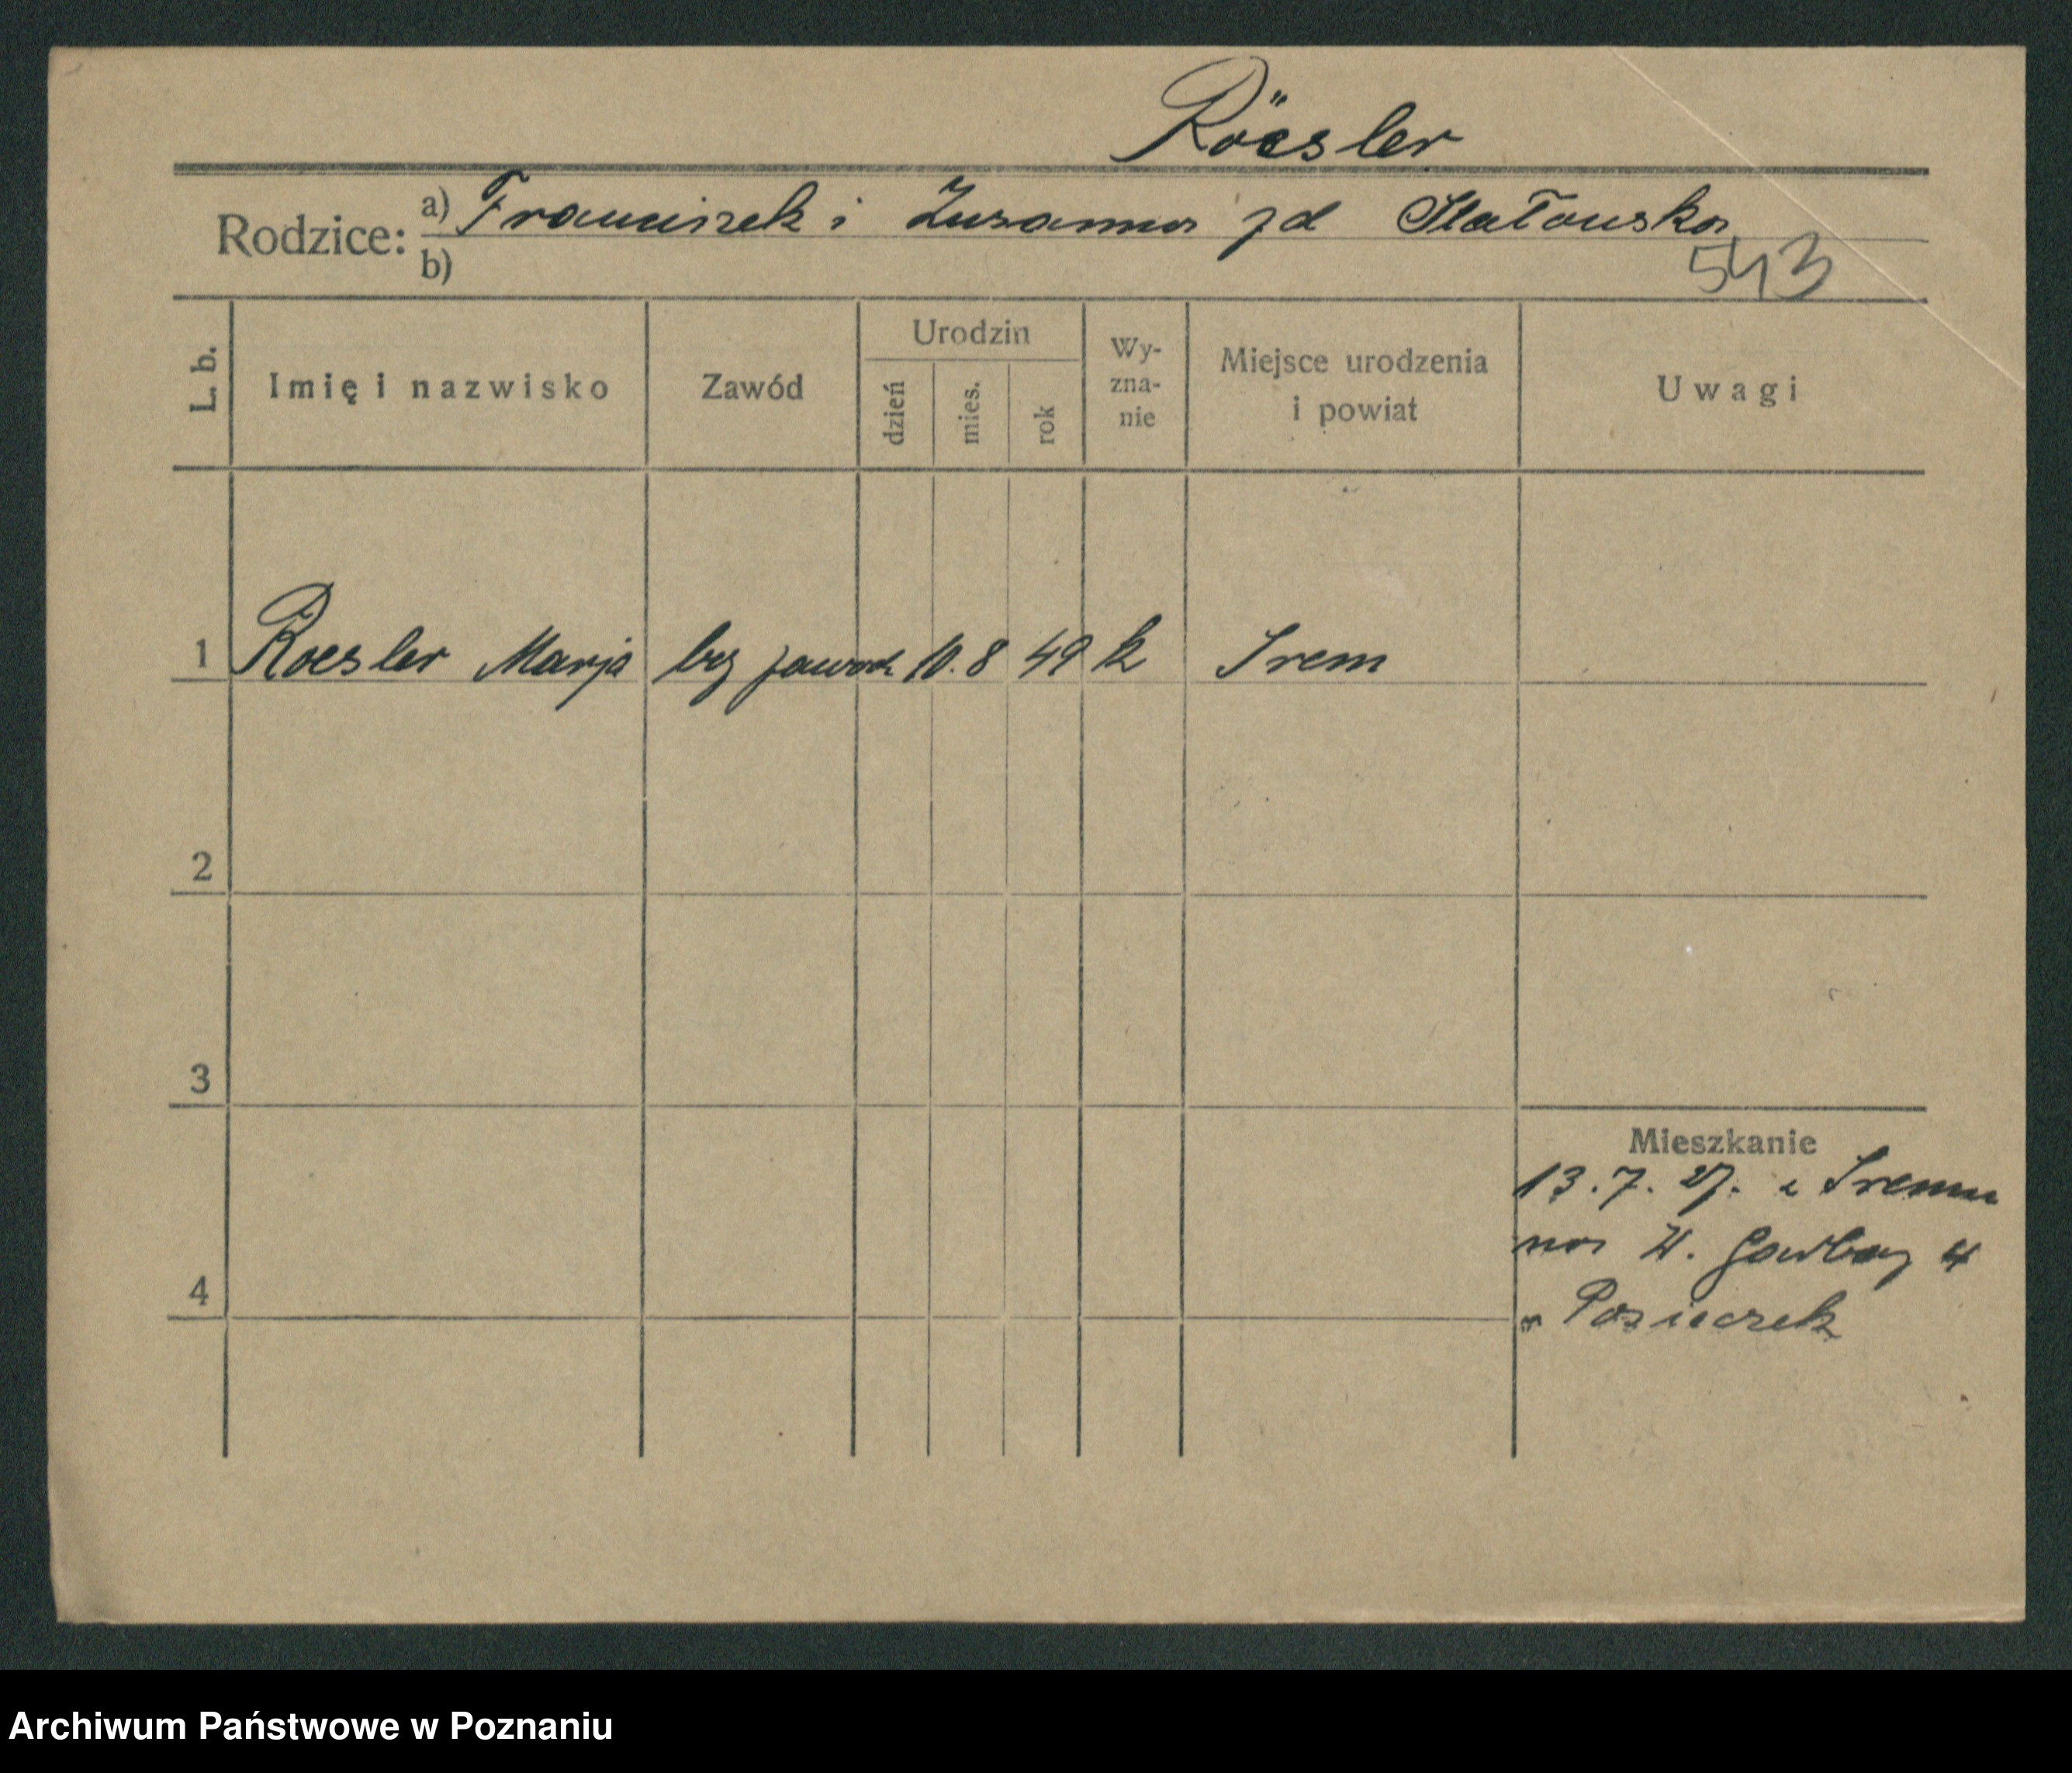 Röesler
Rodzice: a) Franciszek i Zuzanna zd
b)
543
L. b. Imię i nazwisko Zawód Urodzin dzień mies. rok Wy-zna-nie Miejsce urodzenia i powiat Uwagi
1 Roesler Marja bez zawodu 10. 8 49 k Srem
2
3
Mieszkanie
13. 7. 27. z Sremu
4
na W. Garbary 4
Archiwum Państwowe w Poznaniu